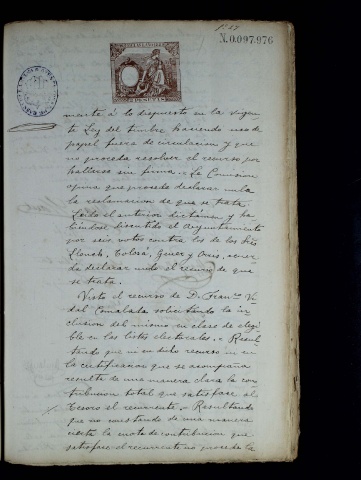 N.0.097.976
PESETAS
mente á lo dispuesto en la vigen-
te Ley del timbre haciendo uso de
papel fuera de circulacion y que
no procede resolver el recurso por
hallarse sin firma. = La Comision
opina que procede declarar nula
la reclamacion de que se trata.
Leido el anterior dictámen y ha-
biéndose discutido el Ayuntamiento
por seis votos contra los de los Sres
Llonch, Tolosá, Gener y Oms, acuer-
da declarar nulo el recurso de que
se trata.
Visto el recurso de D. Franco Vi-
dal Comabata solicitando la in-
clusion del mismo en clase de elegi-
ble en las listas electorales. = Resul-
tando que ni en dicho recurso ni en
la certificacion que se acompaña
resulta de una manera clara la con-
tribucion total que satisface al
Tesoro el recurrente. = Resultando
que no constando de una manera
cierta la cuota de contribucion que
satisface el recurrente no procede la